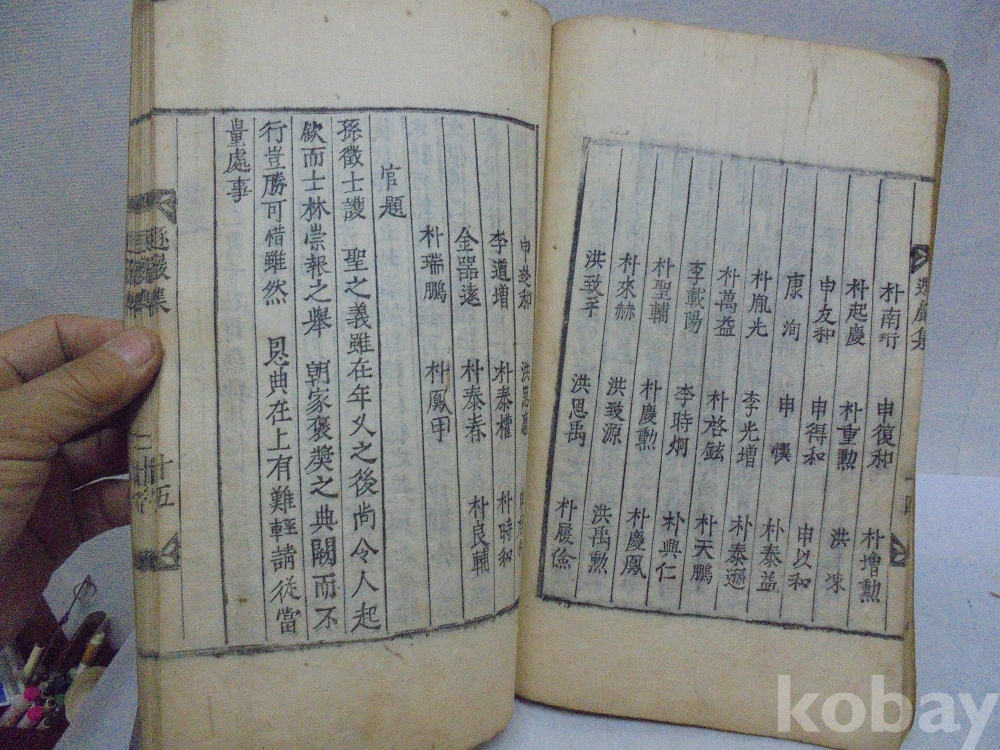 朴南珩 申復和 朴增勲
朴起慶 朴重勲 洪涑
申友和 申得和 申以和
康洵 申愯 朴泰益
朴胤光 李光增 朴泰遜
朴萬益 朴格鉉 朴天鵬
李載陽 李時炯 朴興仁
朴聖輔 朴慶勲 朴慶鳳
朴來赫 洪致源 洪禹勲
洪致孚 洪思禹 朴履儉
申 和 洪思
李道增 朴泰權 朴時和
金器遠 朴泰春 朴良輔
朴瑞鵬 朴鳳甲
官題
孫徵士護 聖之義雖在年久之後尚令人起
欽而士林崇報之舉 朝家褒奬之典闕而不
行豈勝可惜雖然 恩典在上有難輕請從當
量處事
遯巖集
十五
kobay